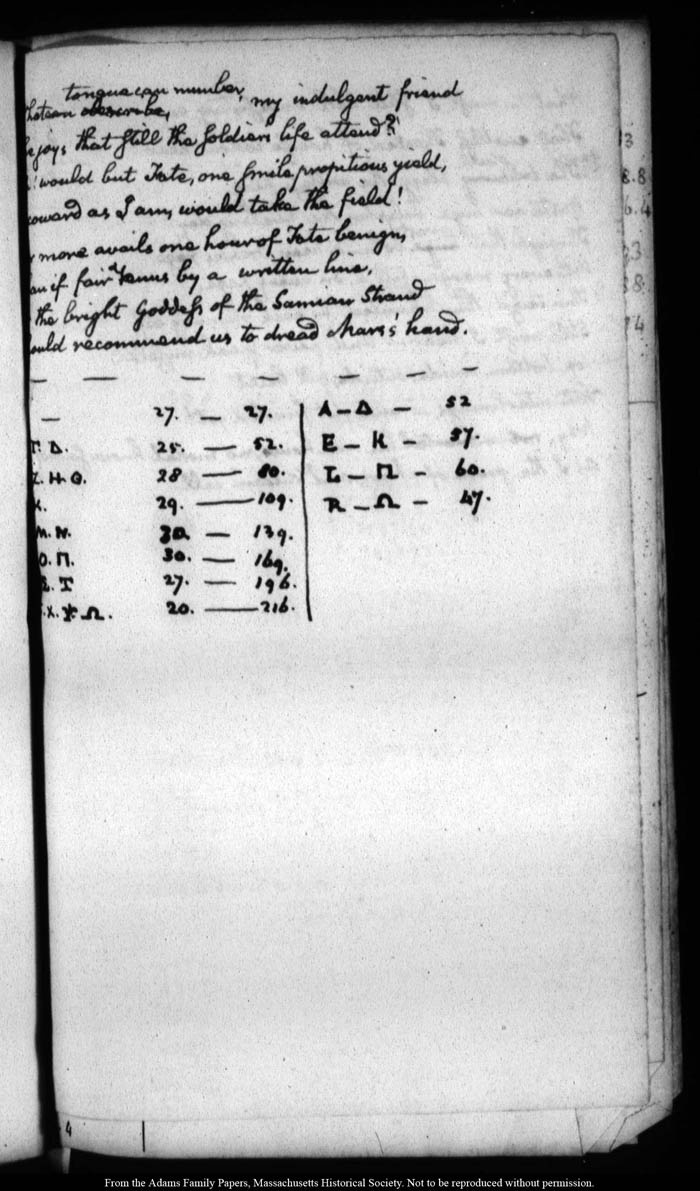 tongue can number, my indulgent friend
can describe,
joys that still the Soldiers life attend?
would but Fate, one smile propitious yield,
coward as I am, would take the field!
more avails one hour of Fate benign,
if fair Venus by a written line,
the bright Goddess of the Samian Strand
ould recommend us to dread Mars's hand.
— — — — — — —
— 27. — 27. A – Δ – 52
Γ. Δ. 25. — 52. E – K – 57.
Z. H. Θ. 28 — 80. L – Π – 60.
K. 29. — 109. R – Ω – 47.
M. N. 30 — 139.
O. Π. 30. — 169.
Σ. T 27. — 196.
X. Ψ. Ω. 20. — 216.
3
8.8
6.4
33
38
74
4
From the Adams Family Papers, Massachusetts Historical Society. Not to be reproduced without permission.